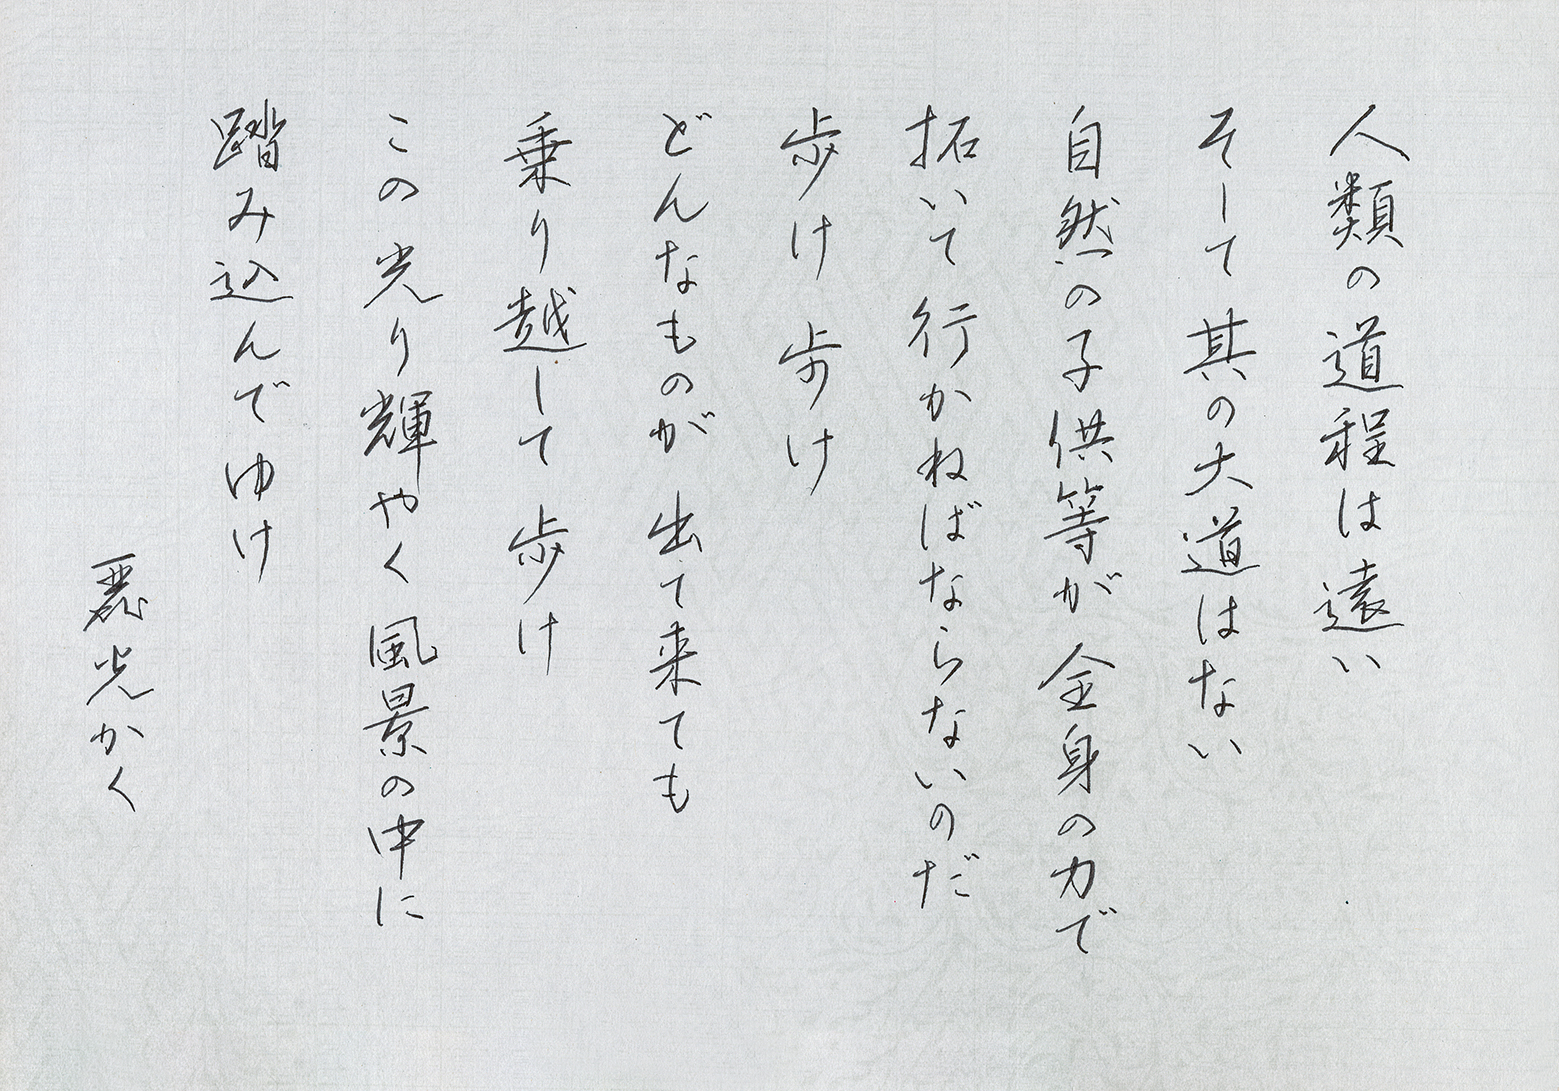 人類の道程は遠い
そして其の大道はない
自然の子供等が全身の力で
拓いて行かねばならないのだ
歩け歩け
どんなものが出て来ても
乗り越して歩け
この光り輝やく風景の中に
踏み込んでゆけ
麗光かく